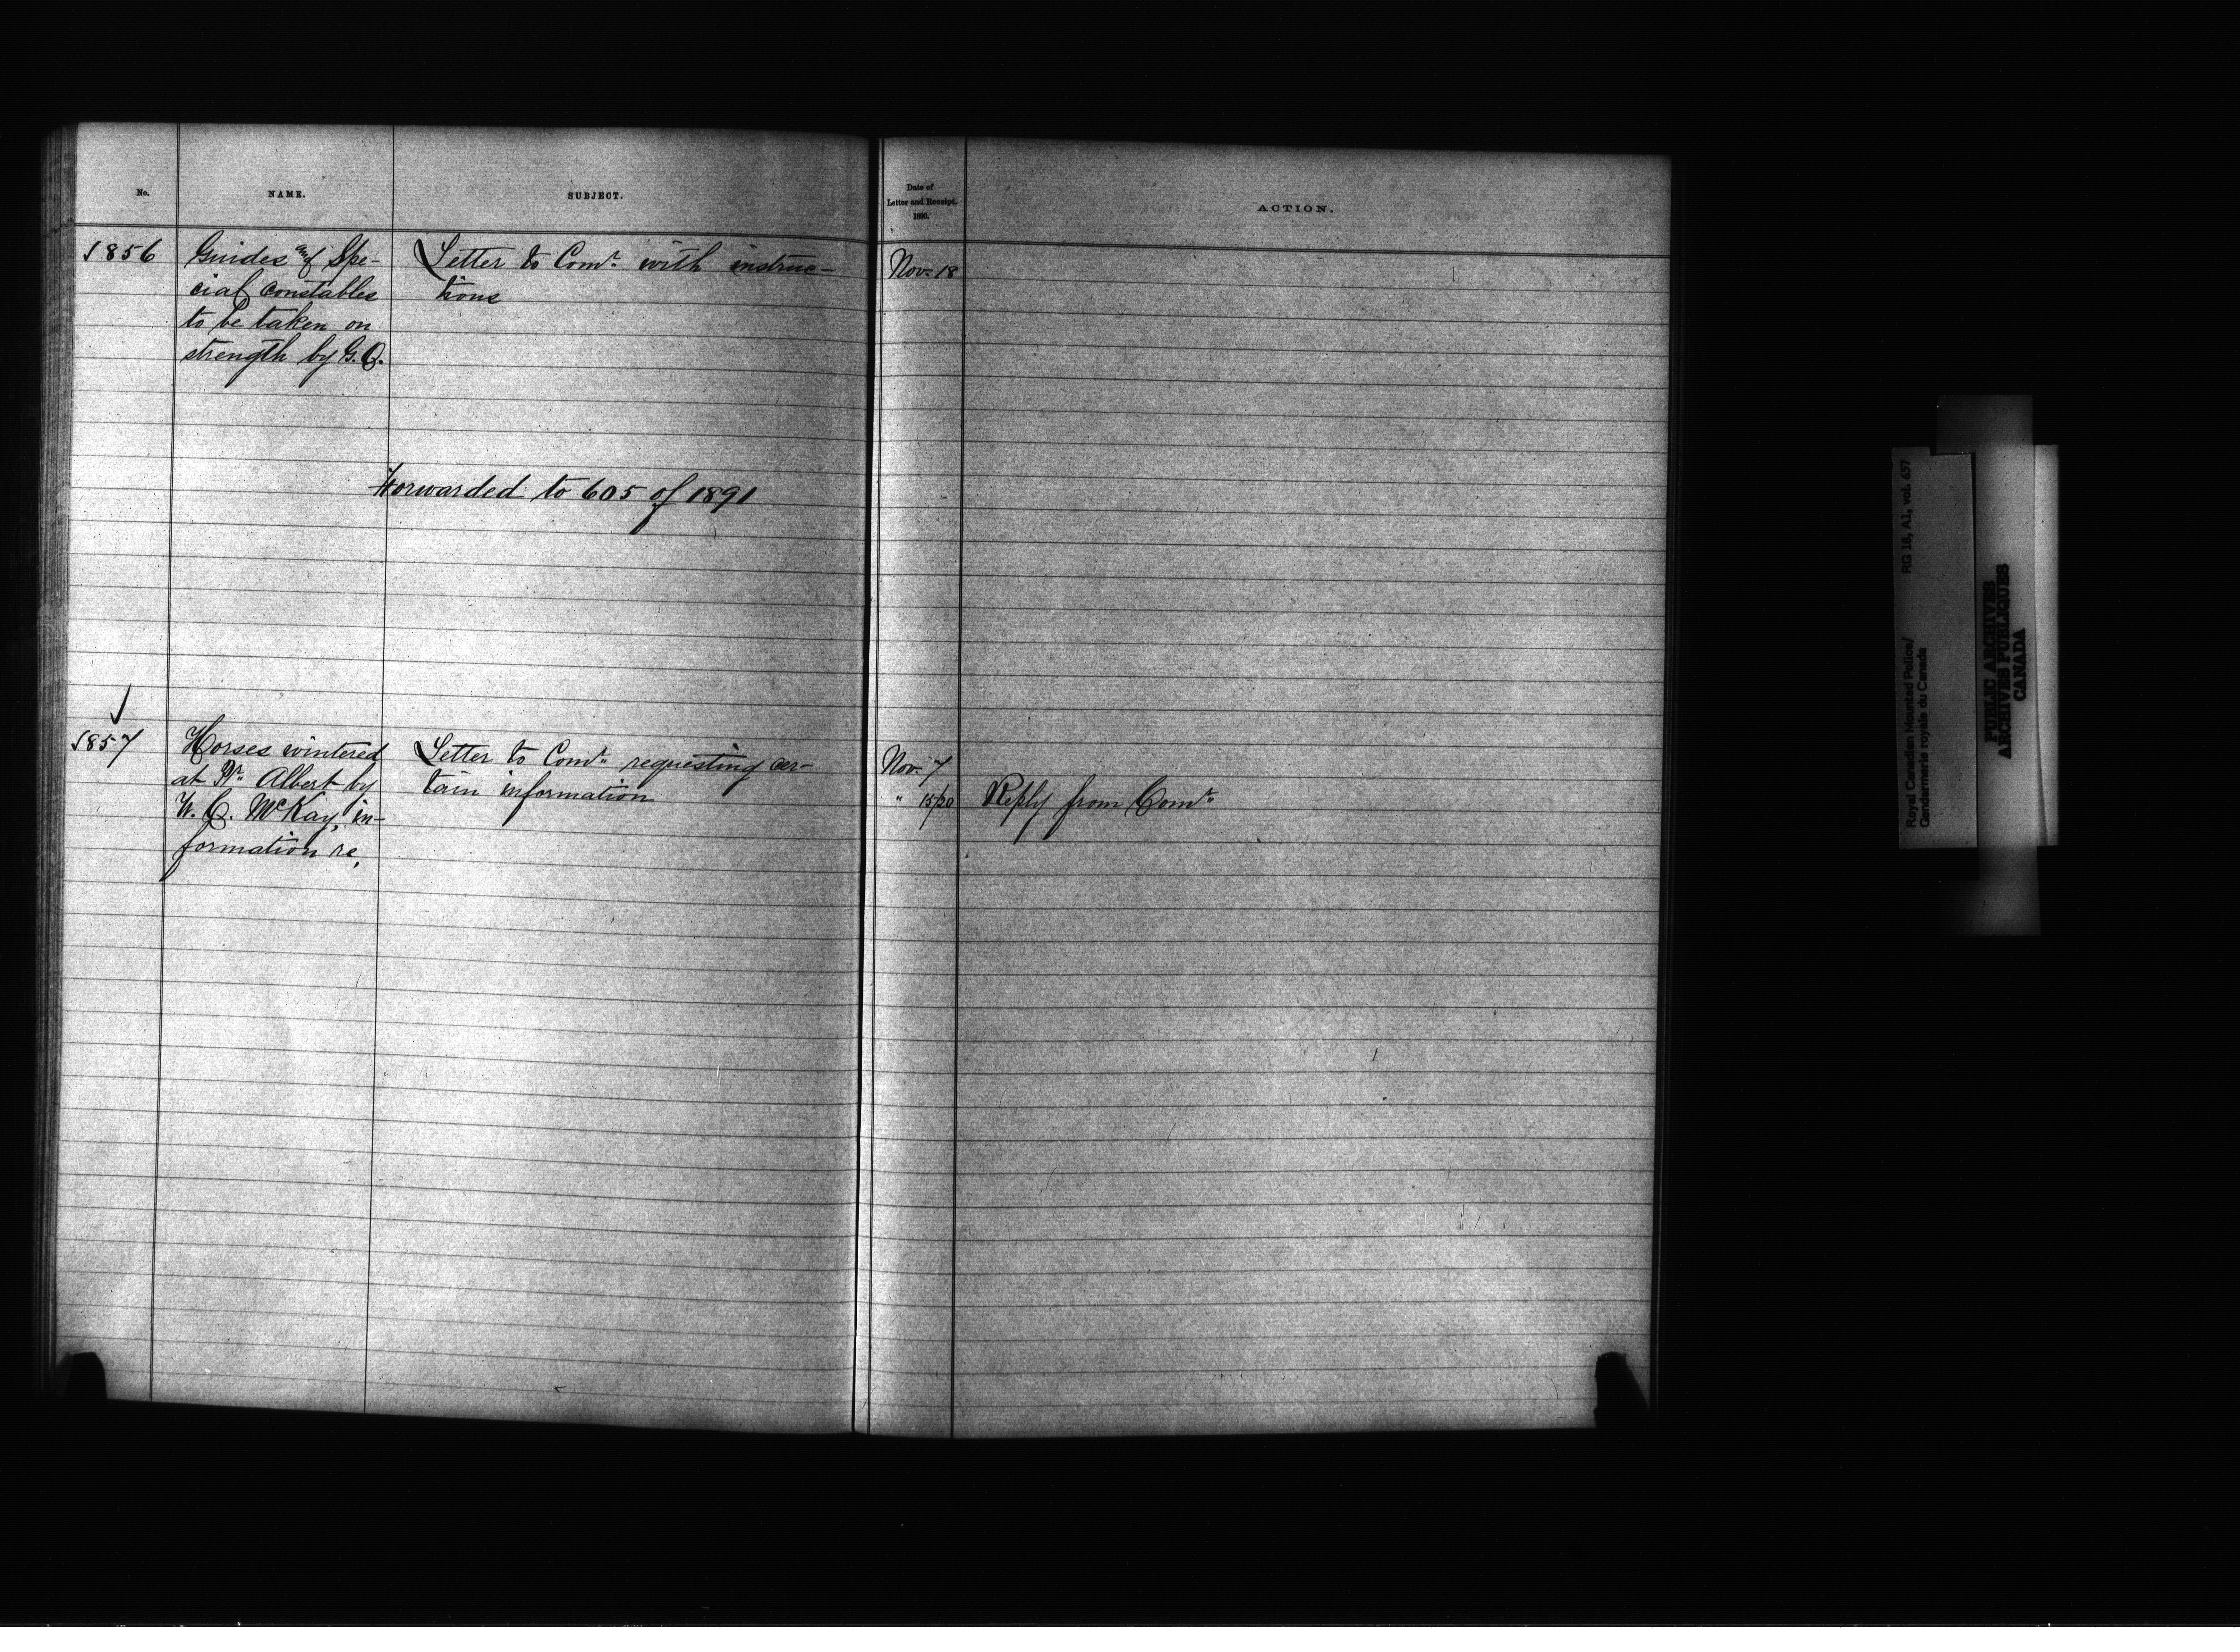 No.
NAME.
SUBJECT.
Date of
Letter and Receipt.
1890.
ACTION.
1856
Guides and Spe-
cial constables
to be taken on
strength by G.O.
Letter to Comr. with instruc-
tions
Nov. 18
Forwarded to 605 of 1891
1857
Horses wintered
at Pr. Albert by
W. C. McKay, in-
formation re,
Letter to Comr. requesting cer-
tain information
Nov. 7
" 15/20
Reply from Comr.
Royal Canadian Mounted Police/
Gendarmerie royale du Canada
RG 18, A1, vol. 657
PUBLIC ARCHIVES
ARCHIVES PUBLIQUES
CANADA